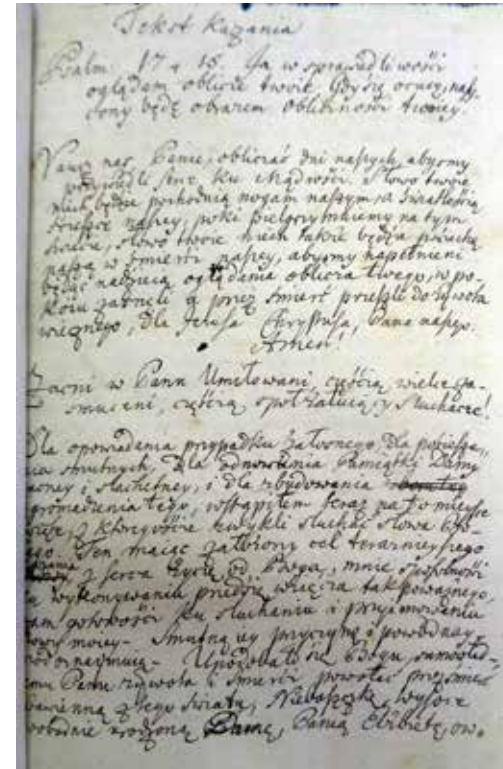 Tekst Kazania
Psalm. 17 v 15. Ja w sprawiedliwości
oglądam oblicze twoie. Gdy się ocucę, nasy-
cony będę obrazem obliczności twoiey.
Naucz nas, Panie, obliczać dni naszych, abyśmy
przywiedli serce ku mądrości. Słowo twoie
niech będzie pochodnią nogam naszym, a światłością
ścieszce naszey, poki pielgrzymuiemy na tym
świecie, słowo twoie niech także będzie pociechą
naszą w śmierci naszey, abyśmy napełnieni
będąc nadzieią oglądania oblicza twego, w po-
koiu zasneli a przez śmierć przeszli do żywota
wiecznego, dla Jezusa Chrystusa, Pana naszego.
Amen!
Zacni w Panu Umiłowani, częścią wielce za-
smuceni, częścią społżałuiący Słuchacze!
Dla opowiadania przypadku żałosnego, dla pociesze-
nia smutnych, dla odnowienia Pamiątki Damy
zacney i szlachetney, i dla zbudowania
zgromadzenia tego, wstąpiłem teraz na to mieysce
z ktoregoście zwykli słuchać słowa Bo-
żego. Ten maiąc założony cel teraznieyszego
z serca życzę od Boga, mnie sposobności
wykonywaniu przedsięwzięcia tak poważnego,
wam gotowości ku słuchaniu i przyimowaniu
mowy moiey. Smutną iey przyczynę i powod nay-
Upodobało się Bogu, samowład-
nemu Panu żywota i śmierci powołać przez śmierć
zbawienną z tego świata, Nieboszczkę, wysoce
wolnie urodzoną Damę, Panią Elżbietę, ow-